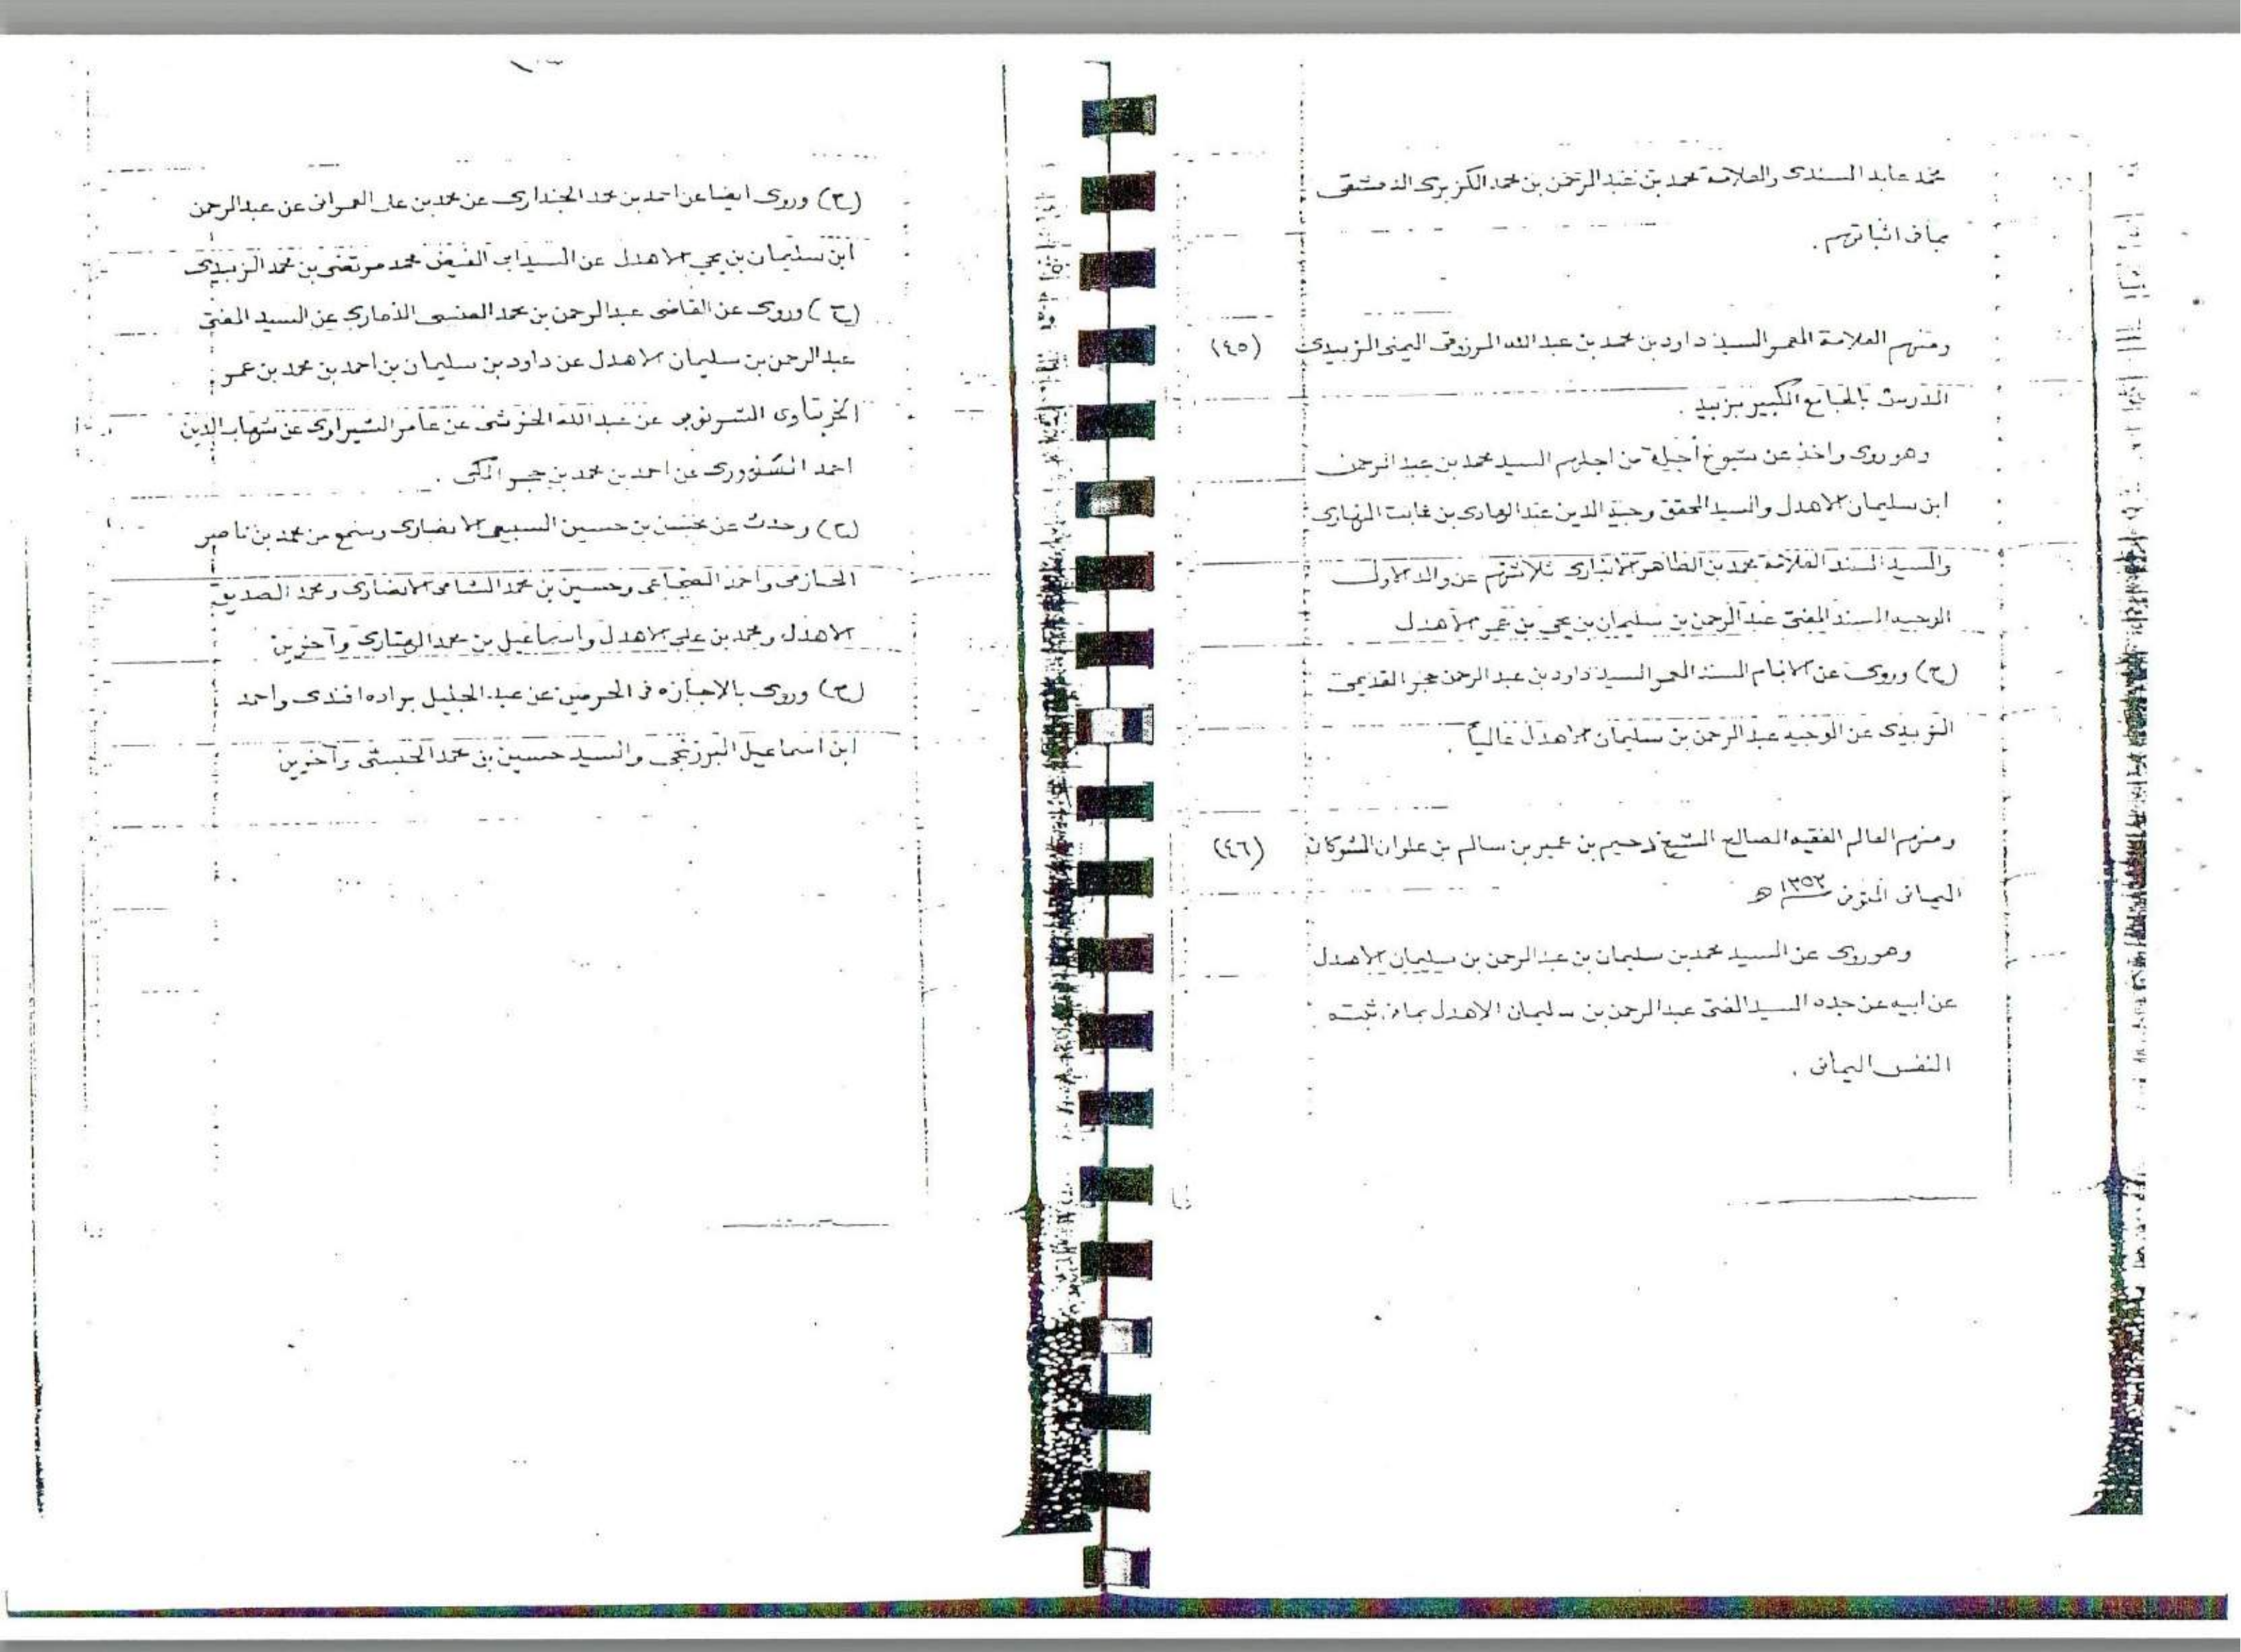 محمد عابد السندى والعلامة محمد بن عبد الرحمن بن محمد الكزبرى الدمشقى
بما فى اثباتهم .
ومنهم العلامة المعمر السيد داود بن محمد بن عبد الله المرزوقى اليمنى الزبيدى (٤٥)
المدرس بالجامع الكبير بزبيد .
وهو روى واخذ عن شيوخ أجلة من اجلهم السيد محمد بن عبد الرحمن
ابن سليمان الاهدل والسيد المحقق وجيه الدين عبد الهادى بن ثابت النهارى
والسيد السند العلامة محمد بن الطاهر الانبارى ثلاثتهم عن والد الاول
الوجيه المسند المفتى عبد الرحمن بن سليمان بن يحي بن عمر الاهدل
(ح) وروى عن الامام المسند المعمر السيد داود بن عبد الرحمن حجر القديمى
الزبيدى عن الوجيه عبد الرحمن بن سليمان الاهدل عالياً .
ومنهم العالم الفقيه الصالح الشيخ بن عمير بن سالم بن علوان الشوكانى (٤٦)
اليمانى المتوفى ١٣٥٢ ه
وهو روى عن السيد محمد بن سليمان بن عبد الرحمن بن سليمان الاهدل
عن ابيه عن جده السيد المفتى عبد الرحمن بن سليمان الاهدل بما فى ثبته
النفس اليمانى .
(ح) وروى ايضا عن احمد بن محمد الجندارى عن محمد بن على العمرانى عن عبد الرحمن
ابن سليمان بن يحي الاهدل عن السيد ابى الفيض محمد مرتضى بن محمد الزبيدى
(ح) وروى عن القاضى عبد الرحمن بن محمد العنسى الذمارى عن السيد المفتى
عبد الرحمن بن سليمان الاهدل عن داود بن سليمان بن احمد بن محمد بن عمر
الخربتاوى الشرنوبى عن عبد الله الخرشى عن عامر الشبراوى عن شهاب الدين
احمد السنهورى عن احمد بن محمد بن حجر المكى .
(ح) وحدث عن محسن بن حسين السبيعى الانصارى وسمع من محمد بن ناصر
الحازمى واحمد الضحاعى وحسين بن محمد الشامى الانصارى ومحمد الصديق
الاهدل ومحمد بن على الاهدل واسماعيل بن محمد الهتارى وآخرين
(ح) وروى بالاجازه فى الحرمين عن عبد الجليل براده افندى واحمد
ابن اسماعيل البرزنجى والسيد حسين بن محمد الحبشى وآخرين